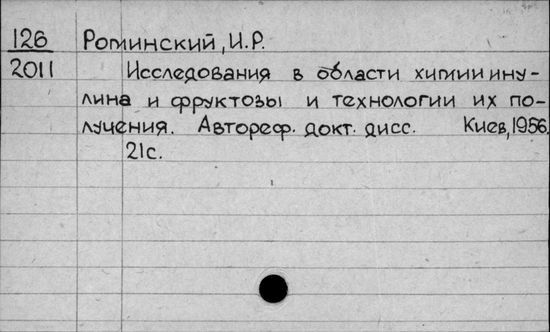 126 Роминский, И.Р.
2011 Исследования в области химии ину-
лина и фруктозы и технологии их по-
лучения. Автореф. докт. дисс. Киев, 1956.
21с.